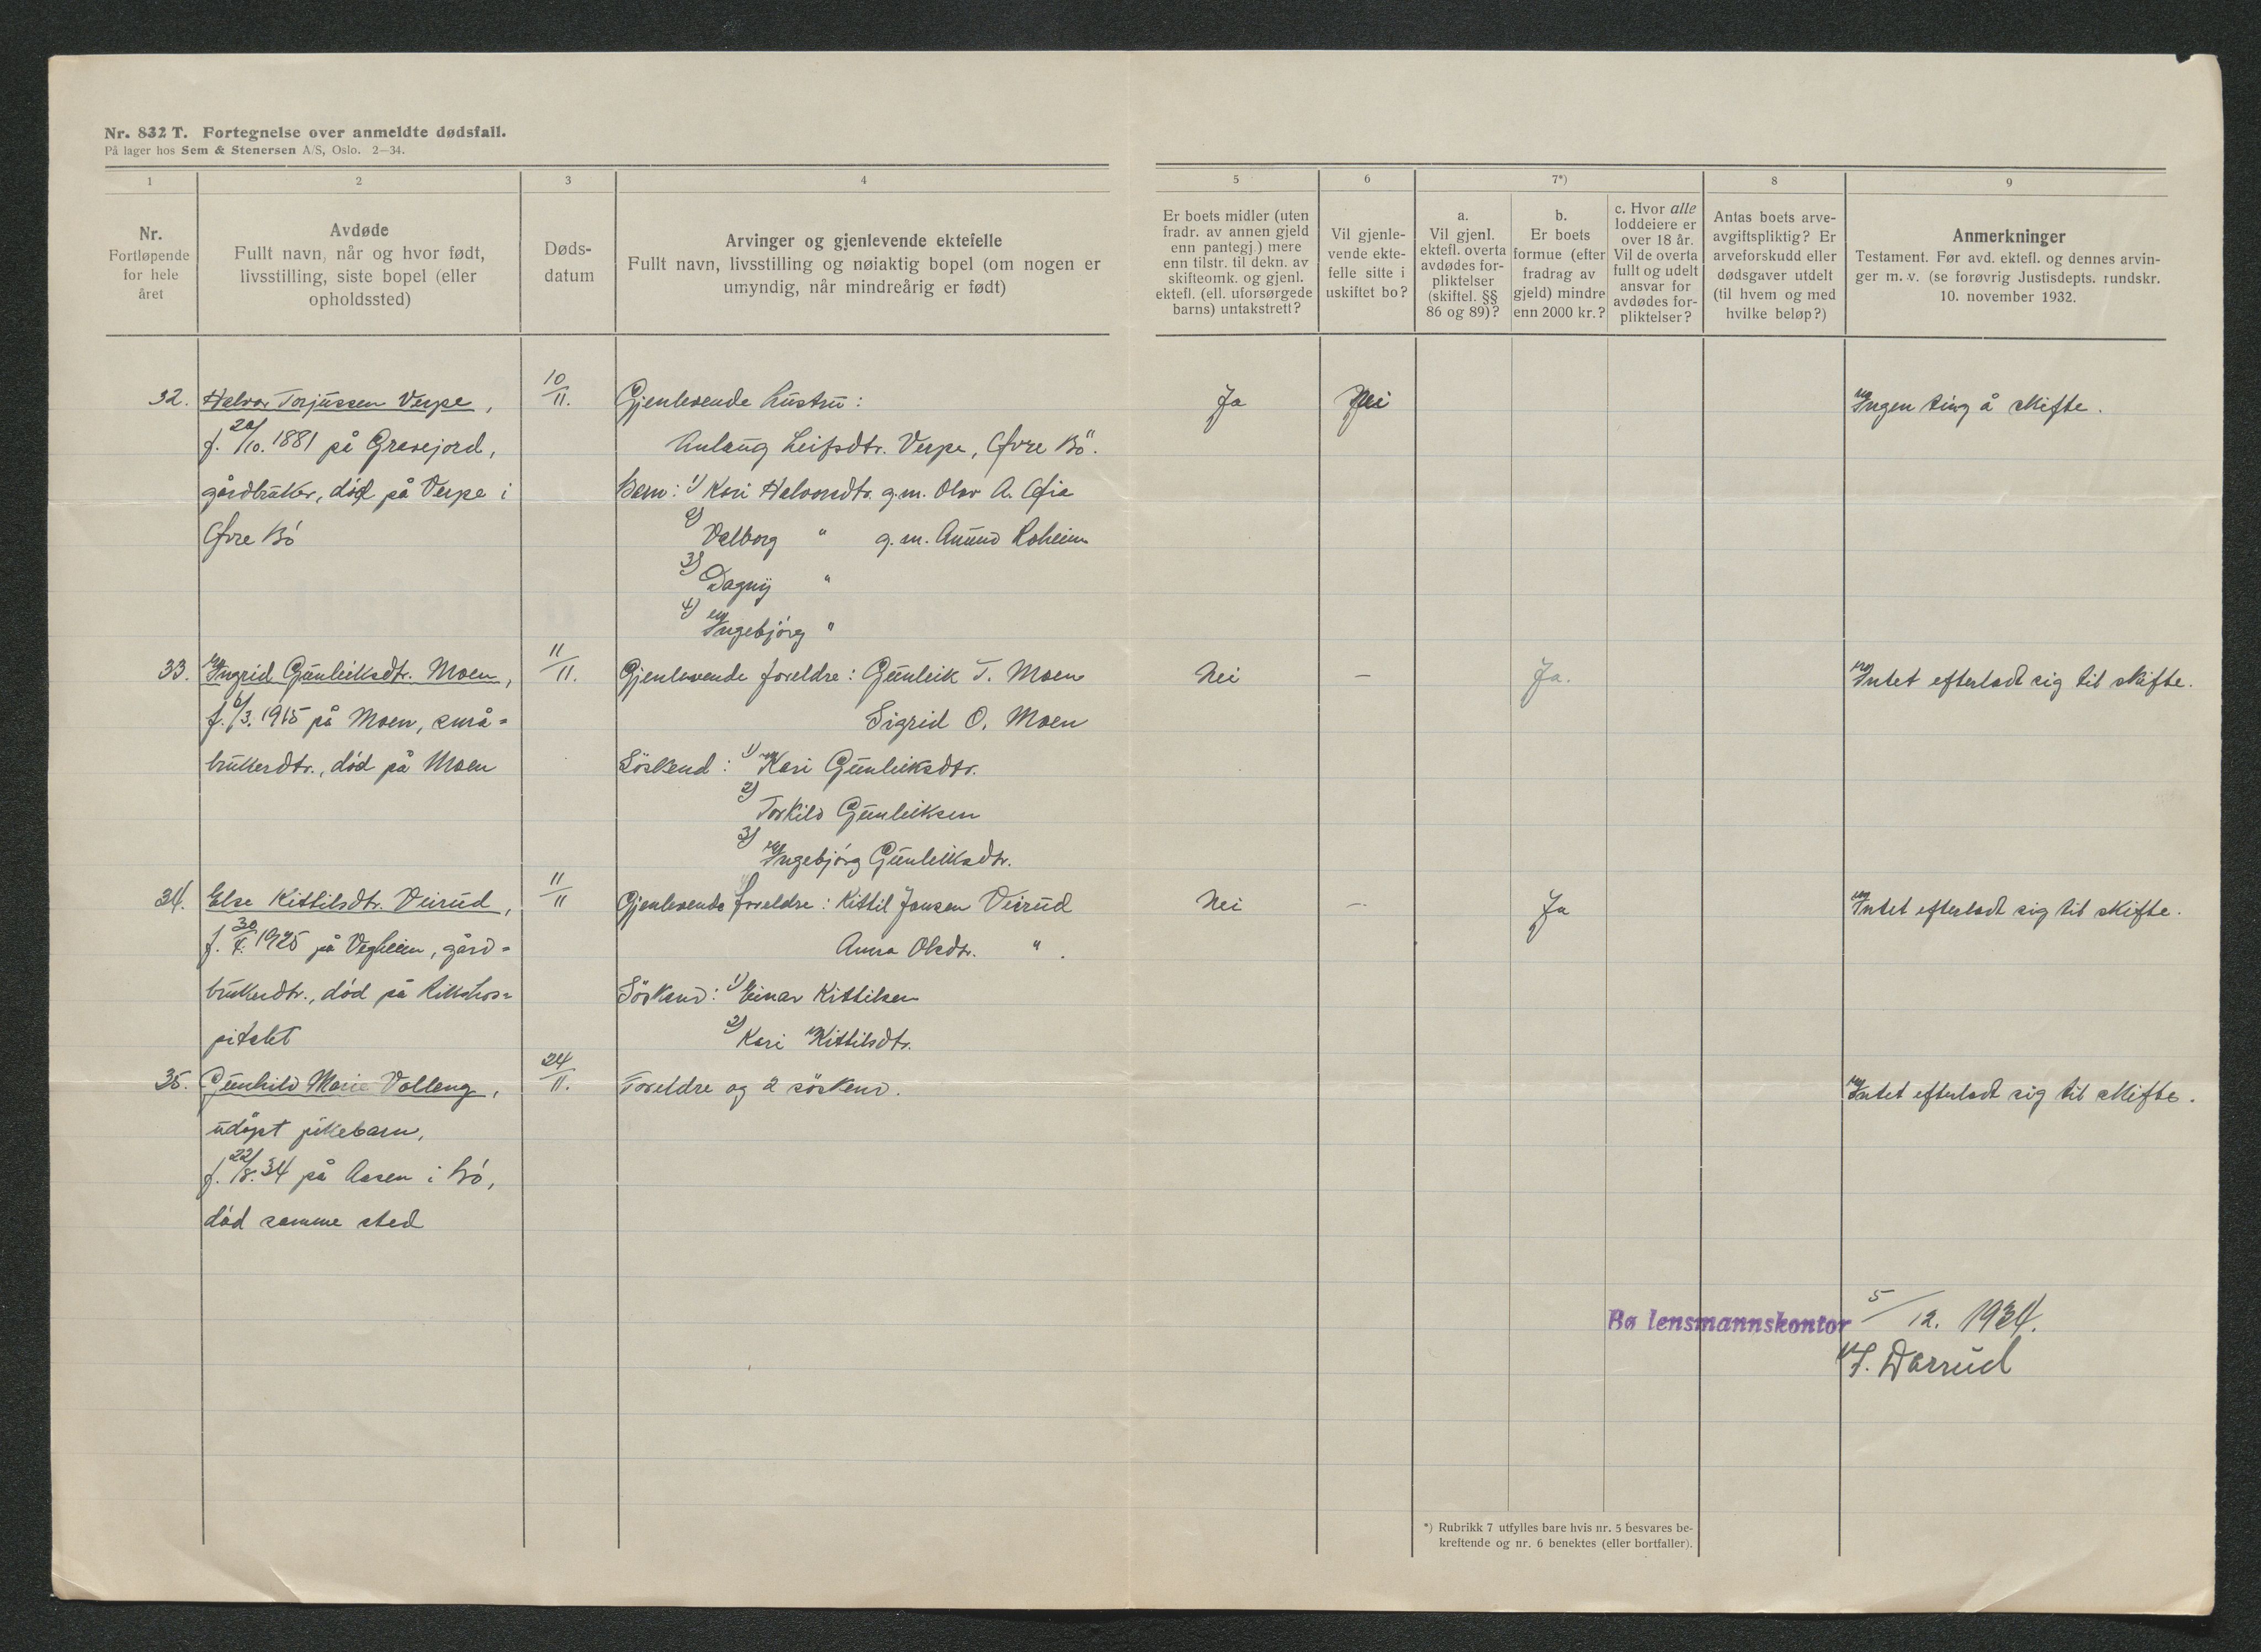 Nr. 832 T. Fortegnelse over anmeldte dødsfall.
På lager hos Sem & Stenersen A/S, Oslo. 2—34.
1
2
3
4
5
6
7*)
8
9
Nr.
Fortløpende
for hele
året
Avdøde
Fullt navn, når og hvor født,
livsstilling, siste bopel (eller
opholdssted)
Døds-
datum
Arvinger og gjenlevende ektefelle
Fullt navn, livsstilling og nøiaktig bopel (om nogen er
umyndig, når mindreårig er født)
Er boets midler (uten
fradr. av annen gjeld
enn pantegj.) mere
enn tilstr. til dekn. av
skifteomk. og gjenl.
ektefl. (ell. uforsørgede
barns) untakstrett?
Vil gjenle-
vende ekte-
felle sitte i
uskiftet bo?
a.
Vil gjenl.
ektefl. overta
avdødes for-
pliktelser
(skiftel. §§
86 og 89)?
b.
Er boets
formue (efter
fradrag av
gjeld) mindre
enn 2000 kr.?
c. Hvor alle
loddeiere er
over 18 år.
Vil de overta
fullt og udelt
ansvar for
avdødes for-
pliktelser?
Antas boets arve-
avgiftspliktig? Er
arveforskudd eller
dødsgaver utdelt
(til hvem og med
hvilke beløp?)
Anmerkninger
Testament. Før avd. ektefl. og dennes arvin-
ger m. v. (se forøvrig Justisdepts. rundskr.
10. november 1932.
32. Halvor Torjussen Verpe, 10/11. Gjenlevende hustru: Ja Nei Ingen ting å skifte.
f. 20/10. 1881 på Gravejord, Anlaug Leifsdtr. Verpe, Øvre Bö.
gårdbruker, död på Verpe i Barn: 1) Kari Halvorsdtr. g.m. Olav A.
Øvre Bö 2) Valborg " g.m. Anund Roheim
3) Dagny "
4) Ingebjörg "
33. Ingrid Gunleiksdtr. Moen, 11/11. Gjenlevende foreldre: Gunleik T. Moen Nei — Ja. Intet efterladt sig til skifte.
f. 6/3. 1915 på Moen, små= Sigrid O. Moen
brukerdtr., död på Moen Söskend: 1) Kari Gunleiksdtr.
2) Torkild Gunleiksen
3) Ingebjörg Gunleiksdtr.
34. Else Kittilsdtr. Veirud, 11/11 Gjenlevende foreldre: Kittil Jansen Veirud Nei — Ja Intet efterladt sig til skifte.
f. 30/4. 1925 på Vegheim, gård= Anna Olsdtr. " .
brukerdtr., död på Rikshos= Söskend: 1) Einar Kittilsen
pitalet 2) Kari Kittilsdtr.
35. Gunhild Marie Volleng, 24/11. Foreldre og 2 söskend. Intet efterladt sig til skifte.
udöpt pikebarn,
f. 22/8. 34 på Aasen i Bö,
död samme sted
Bø lensmannskontor 5/12. 1934.
Darrud
*) Rubrikk 7 utfylles bare hvis nr. 5 besvares be-
kreftende og nr. 6 benektes (eller bortfaller).